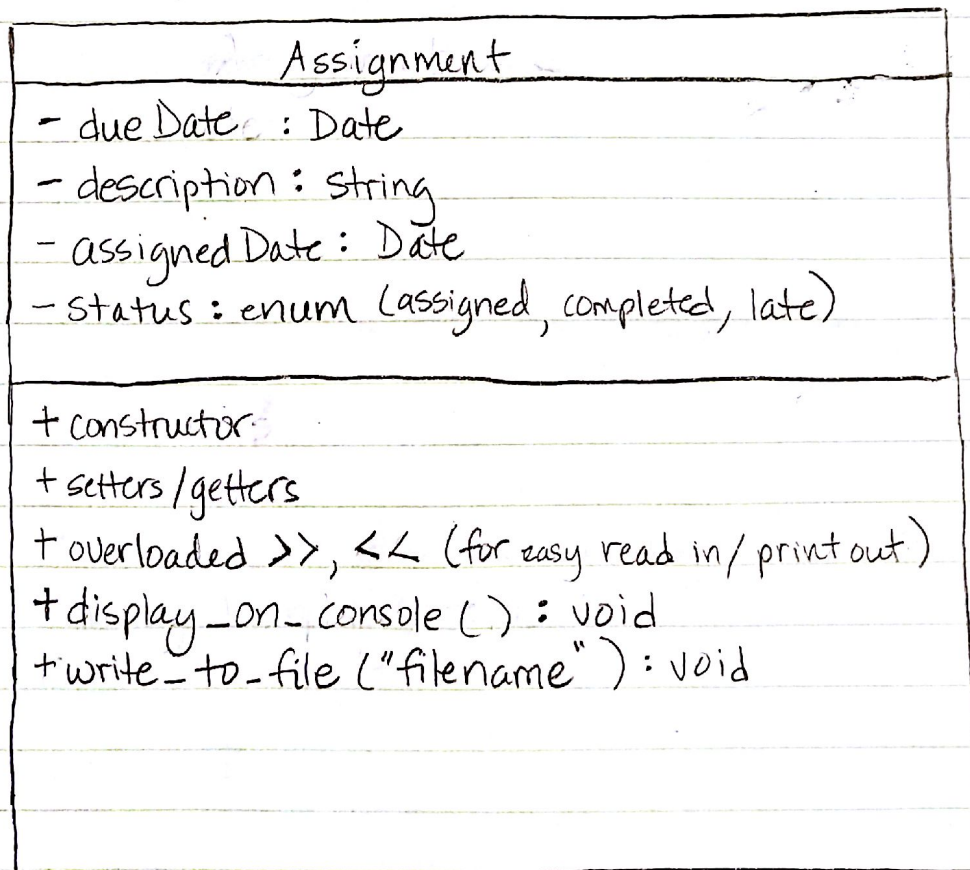 Assignment
- dueDate : Date
- description : string
- assignedDate : Date
- status : enum (assigned, completed, late)
+ constructor
+ setters/getters
+ overloaded >>, << (for easy read in/print out)
+ display_on_console() : void
+ write_to_file("filename") : void